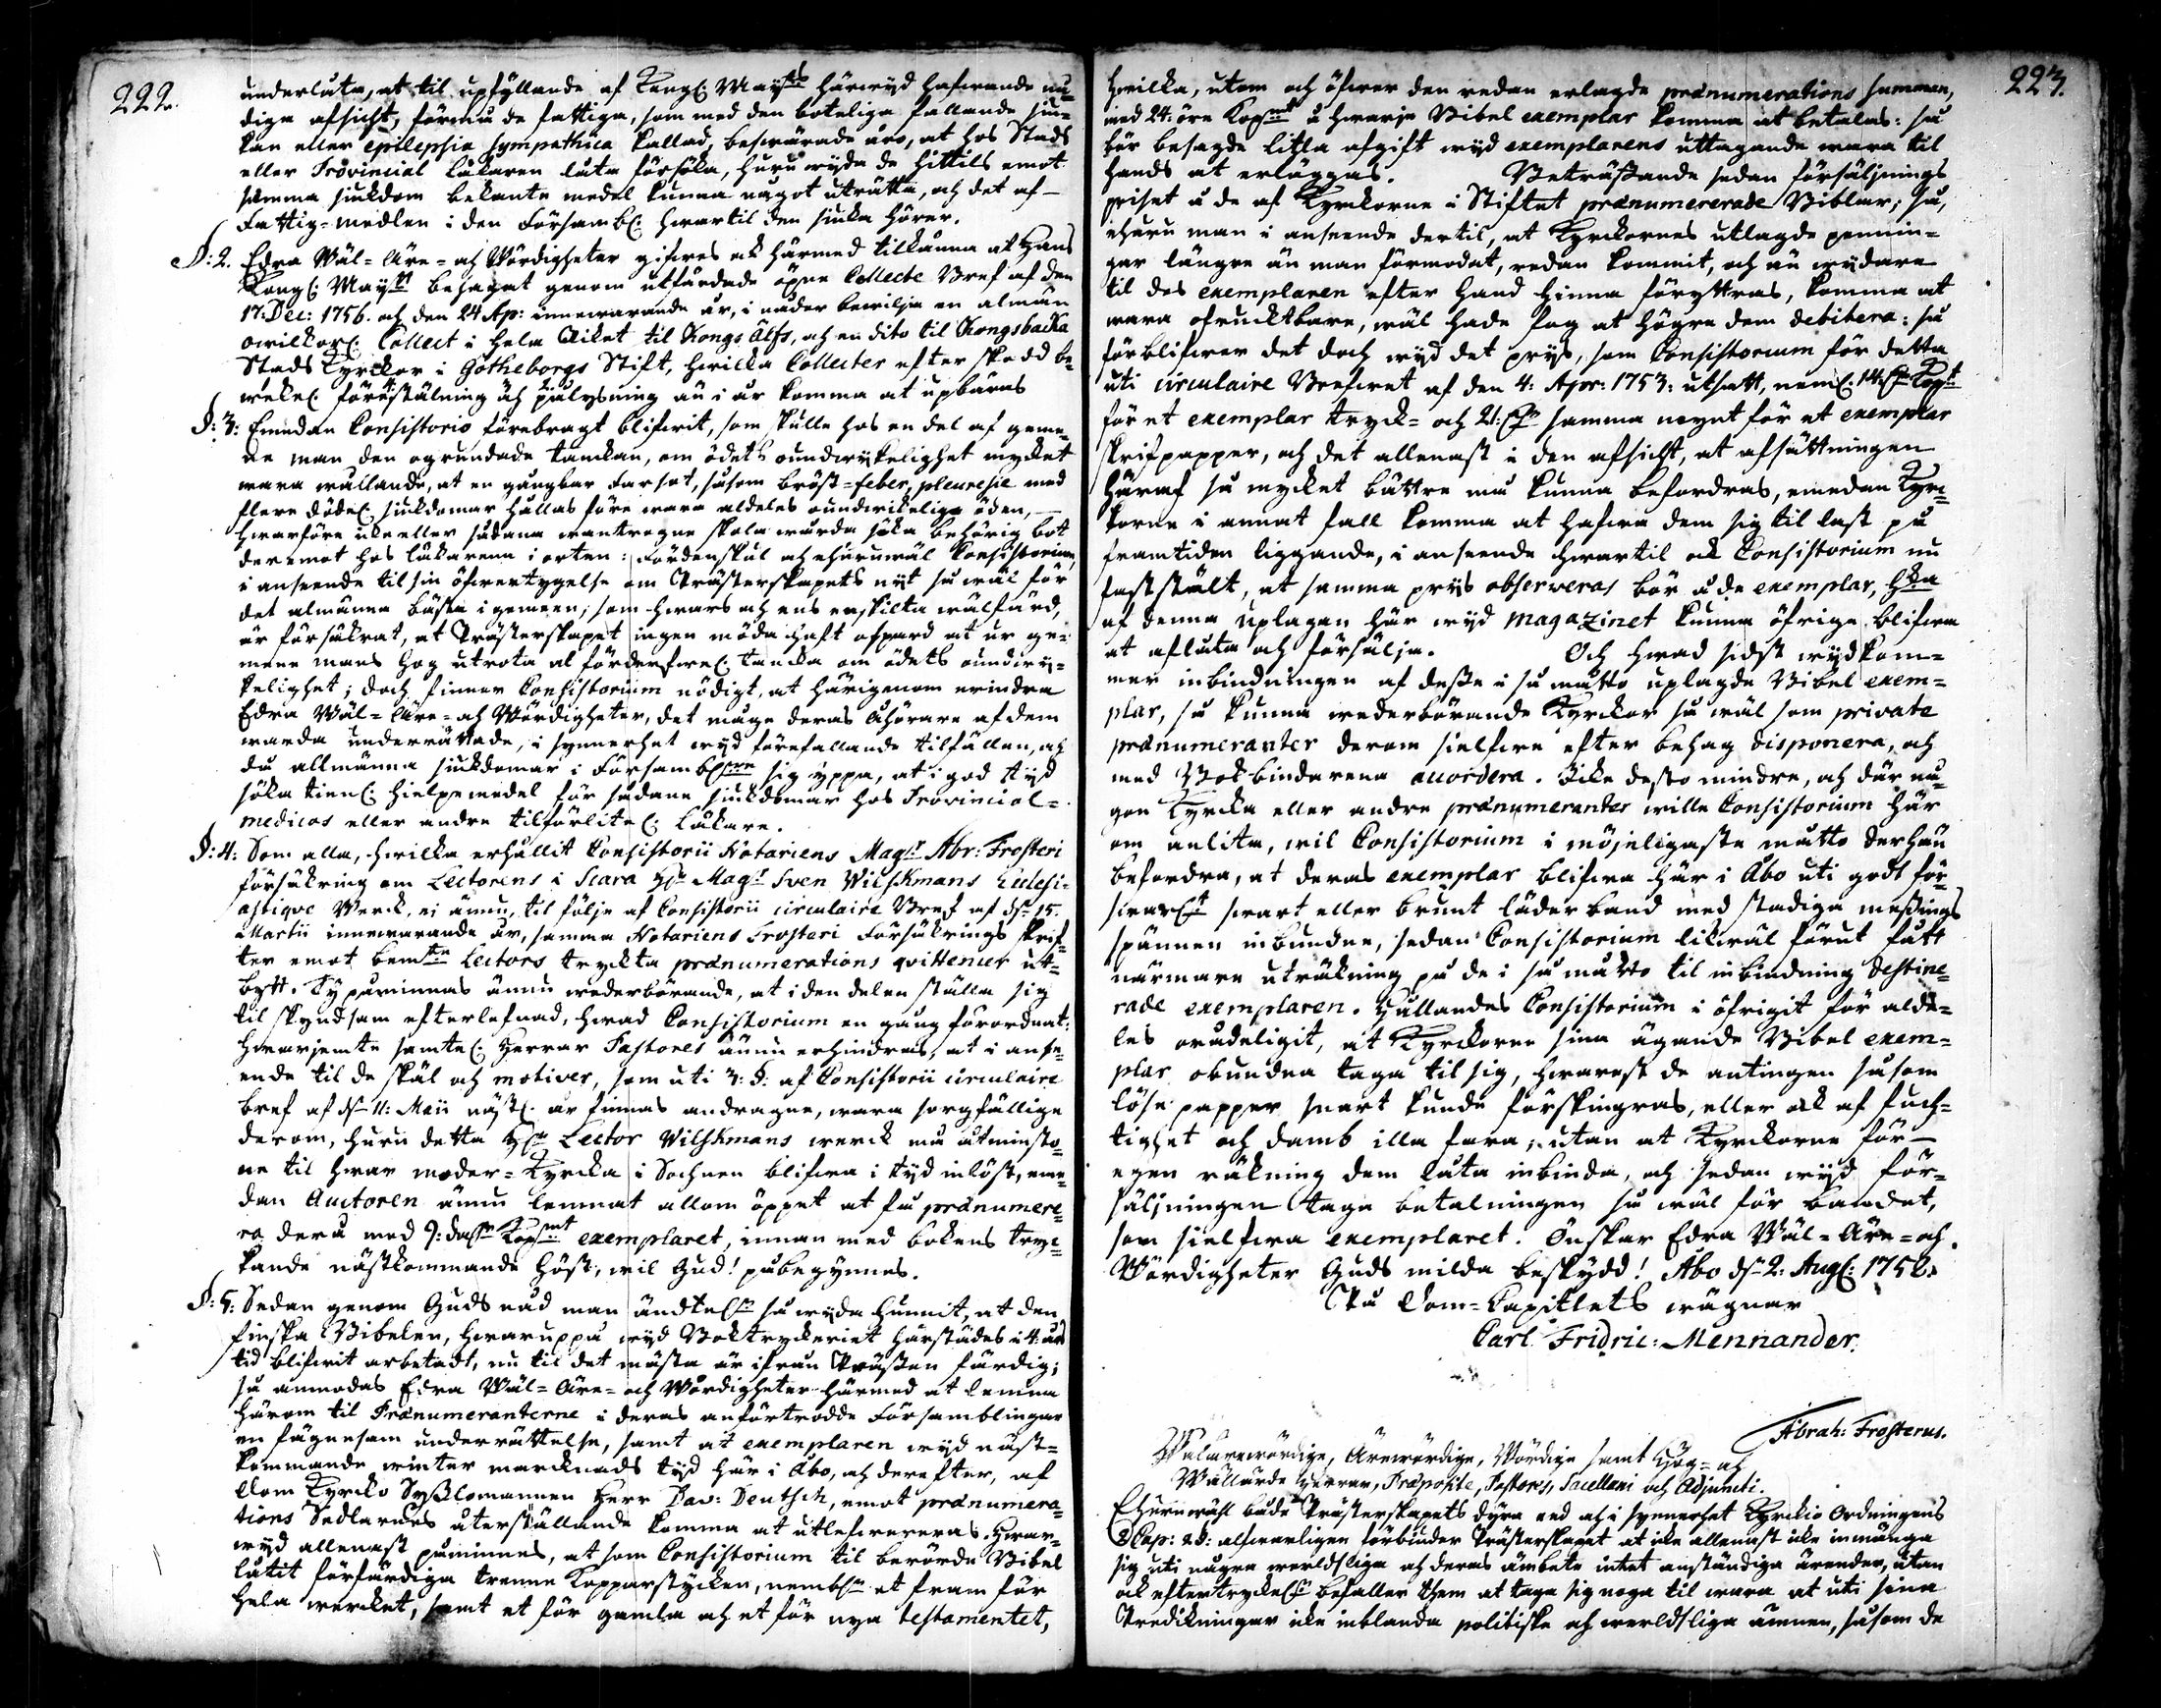 222.
underlåta, at til upfyllande af Kongl: Mayts härwyd hafwande nå-
diga afsicht, förmå de fattiga, som med den boteliga fallande siu-
kan eller epilepsia sympathica kallad, beswärade äro, at hos Stads
eller Provincial Läkaren låta försöka, huru wyda de hittils emot
samma siukdom bekante medel kunna något uträtta, och det af
Fattig-medlen i den Församl: hwartil den siuka hörer.
§: 2. Edra Wäl-Äre- och Wördigheter gifwes ock härmed tilkänna at Hans
Kongl: Mayst behagat genom utfärdade öpne Collecte Bref af den
17: Dec: 1756. och den 24 Ap: innewarande år, i nåder bewilja en almän
owilkorl: Collect i hela Riket til Kongs Älfs, och en dito til Kongsbacka
Stads Kyrckor i Götheborgs Stift, hwilka Collecter efter skedd be-
wekel: föreställning och pålysning än i år komma at upbäras
§: 3: Emedan Consistorio förebragt blifwit, som skulle hos en del af geme-
ne man den ogrundade tanckan, om ödets oundwykelighet mycket
wara wållande, at en gångbar farsot, såsom bröst-feber, pleuresie med
flere dödel: siukdomar hållas före wara aldeles oundwikeliga öden,
hwarföre icke eller sådana wantrogne skola wårda söka behörig bot
deremot hos läkarena i orten: Fördenskul och ehuruwäl Consistorium,
i anseende til sin öfwertygelse om Prästerskapets nyt så wäl för
det almänna bästa i gemeen, som hwars och ens enskilta wälfärd,
är försäkrat, at Prästerskapet ingen möda haft ospard at ur ge-
mene mans hog utrota al förderfwel: tancka om ödets oundwy-
kelighet; doch finner Consistorium nödigt, at härigenom erindra
Edra Wäl-Äre- och Wördigheter, det måge deras åhörare af dem
warda underrättade, i synnerhet wyd förefallande tilfällen, och
då allmänna siukdomar i Församblne sig yppa, at i god tyd
söka tienl: hielpemedel för sådane siukdomar hos Provincial-
medicos eller andre tilförlitel: Läkare.
§: 4: Som alla, hwilka erhållit Consistorii Notariens Magr Abr: Frosteri
försäkring om Lectorens i Scara Hr Magr Sven Wilskmans Ecclesi-
astique Werck, ei ännu, til följe af Consistorii circulaire Bref af dn 15.
Martii innewarande år, samma Notariens Frosteri Försäkrings skrif-
ter emot bemte Lectors tryckta prænumerations qvittencer ut-
bytt. Ty påminnas ännu wederbörande, at i den delen ställa sig
til skyndsam efterlefnad, hwad Consistorium en gång förordnat:
hwarjemte samtel: Herrar Pastores ännu erhindras, at i anse-
ende til de skäl och motiver, som uti 3: §: af Consistorii circulaire
bref af dn 11: Maii nästl: år finnas andragne, wara sorgfällige
derom, huru detta Hr Lector Wilskmans werck må åtminsto-
ne til hwar moder-Kyrcka i Sochnen blifwa i tyd inlöst, eme-
dan Auctoren ännu lemnat allom öppet at få prænumere-
ra derå med 9: dalr Kopmt exemplaret, innan med bokens tryc-
kande nästkommande höst, wil Gud! påbegynnes.
§: 5: Sedan genom Guds nåd man ändtel: så wyda hunnit, at den
finska Bibelen, hwaruppå wyd Boktryckeriet härstädes i 4: års
tid blifwit arbetadt, nu til det mästa är ifrån Prässen färdig;
så anmodas Edra Wäl-Äre- och Wördigheter härmed at lemna
härom til Prænumeranterne i deras anförtrodde Församblingar
en fägnesam underrättelse, samt at exemplaren wyd näst-
kommande winter marcknads tyd här i Åbo, och derefter, af
Dom Kyrcko Sysslomannen Herr Dav: Deutsch, emot prænumera-
tions Sedlarnes återställande komma at utlefwereras. Hwar-
wyd allenast påminnes, at som Consistorium til berörde Bibel
låtit förfärdiga trenne Kopparstycken, nembl: et fram för
hela wercket, samt et för gamla och et för nya testamentet,
223.
hwilka, utom och öfwer den redan erlagde prænumerations summan,
med 24: öre Kopmt å hwarje Bibel exemplar komma at betalas: så
bör besagde litla afgift wyd exemplarens uttagande wara til
hands at erläggas. Beträffande sedan försäljnings
priset å de af Kyrckorne i Stiftet prænumererade Biblar; så,
ehuru man i anseende dertil, at Kyrckornes utlagde pennin-
gar längre än man förmodat, redan kommit, och än wydare
til des exemplaren efter hand hinna föryttras, komma at
wara ofrucktbare, wäl hade fog at högre dem debitera: så
förblifwer det doch wyd det prys, som Consistorium för detta
uti circulaire Brefwet af den 4: Apr: 1753: utsatt, neml: 14: dr Kopmt
för et exemplar tryck- och 21: dr samma mynt för et exemplar
skrifpapper, och det allenast i den afsicht, at afsättningen
häraf så mycket bättre må kunna befordras, emedan Kyrc-
korne i annat fall komma at hafwa dem sig til last på
framtiden liggande, i anseende hwartil ock Consistorium nu
fastställt, at samma prys observeras bör å de exemplar, hka
af denna uplagan här wyd Magazinet kunna öfrige blifwa
at aflåta och försälja. Och hwad sidst wydkom-
mer inbindningen af desse i så måtto uplagde Bibel exem-
plar, så kunna wederbörande Kyrckor så wäl som private
prænumeranter derom sielfwe efter behag disponera, och
med Bokbindarena accordera. Icke desto mindre, och där nå-
gon Kyrcka eller andre prænumeranter wille Consistorium här
om anlita, wil Consistorium i möjeligaste måtto derhän
befordra, at deras exemplar blifwa här i Åbo uti godt för-
swarl:t swart eller brunt läder band med stadiga messings
spännen inbundne, sedan Consistorium likwäl förut fått
närmare uträkning på de i så måtto til inbindning destine-
rade exemplaren. Hållandes Consistorium i öfrigit för alde-
les orådeligit, at Kyrckorne sina ägande Bibel exem-
plar obundna taga til sig, hwarest de antingen såsom
löse papper snart kunde förskingras, eller ock af fuch-
tighet och damb illa fara; utan at Kyrckorne för
egen räkning dem låta inbinda, och sedan wyd för-
säljningen taga betalningen så wäl för bandet,
som sielfwa exemplaret. Önskar Edra Wäl-Äre- och
Wördigheter Guds milda beskydd! Åbo dn 2: Aug: 1758.
På Dom-Capitlets wägnar
Carl Fridric: Mennander.
Abrah: Frosterus.
Wälärewördige, Ärewördige, Wördige samt Hög- och
Wällärde Herrar, Præposite, Pastores, Sacellani och Adjuncti.
Ehuruwäl både Prästerskapets dyra ed och i synnerhet Kyrckio Ordningens
Cap: 2 §: alfwarligen förbinder Prästerskapet at icke allenast icke inmänga
sig uti några werldsliga och deras ämbete intet anständiga ärender, utan
ock eftertryckel: befaller them at taga sig noga til wara at uti sina
Predikningar icke inblanda politiska och werldsliga ämnen, såsom de